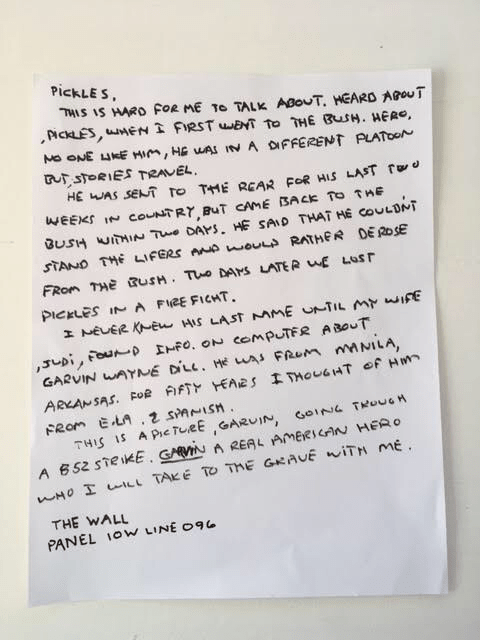 PICKLES,
THIS IS HARD FOR ME TO TALK ABOUT. HEARD ABOUT
,PICKLES, WHEN I FIRST WENT TO THE BUSH. HERO,
NO ONE LIKE HIM, HE WAS IN A DIFFERENT PLATOON
BUT, STORIES TRAVEL.
HE WAS SENT TO THE REAR FOR HIS LAST TWO
WEEKS IN COUNTRY, BUT CAME BACK TO THE
BUSH WITHIN TWO DAYS. HE SAID THAT HE COULDN'T
STAND THE LIFERS AND WOULD RATHER DEROSE
FROM THE BUSH. TWO DAYS LATER WE LOST
PICKLES IN A FIREFIGHT.
I NEVER KNEW HIS LAST NAME UNTIL MY WIFE
,JUDI, FOUND INFO. ON COMPUTER ABOUT
GARVIN WAYNE DILL. HE WAS FROM MANILA,
ARKANSAS. FOR FIFTY YEARS I THOUGHT OF HIM
FROM E.LA. & SPANISH.
THIS IS A PICTURE, GARVIN, GOING TROUGH
A B52 STRIKE. GARVIN A REAL AMERICAN HERO
WHO I WILL TAKE TO THE GRAVE WITH ME.
THE WALL
PANEL 10W LINE 096